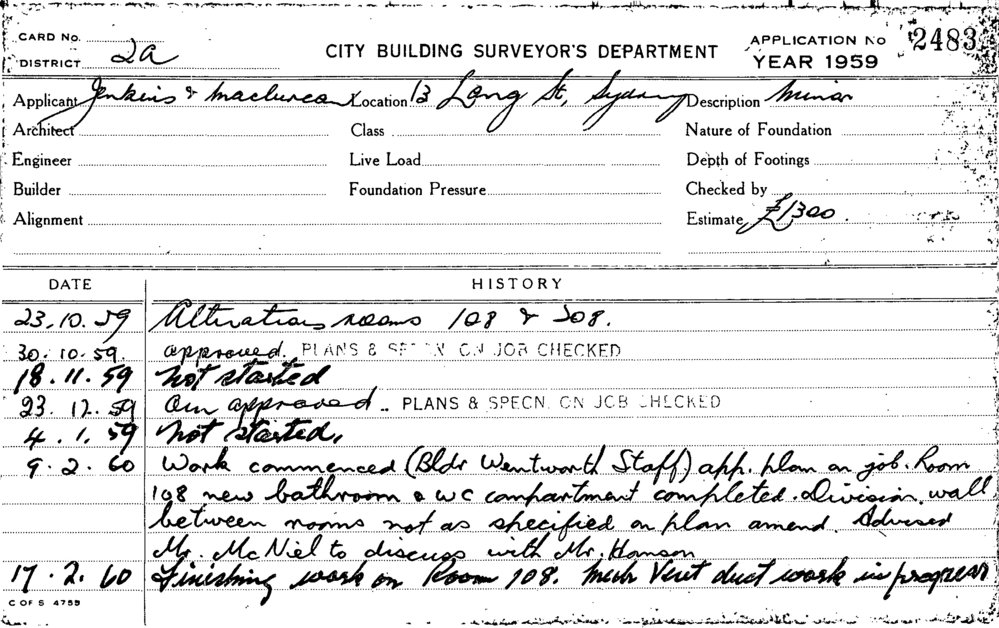 CARD No.
CITY BUILDING SURVEYOR'S DEPARTMENT
APPLICATION No 2483
DISTRICT 2a
YEAR 1959
Applicant Jenkins & Maclurcan Location 13 Lang St, Sydney Description Minor
Architect Class Nature of Foundation
Engineer Live Load Depth of Footings
Builder Foundation Pressure Checked by
Alignment Estimate £1300.
DATE HISTORY
23.10.59 Alterations rooms 108 & 208.
30.10.59. approved. PLANS & SPECN ON JOB CHECKED
18.11.59 Not started
23.12.59 Am approved.. PLANS & SPECN. ON JOB CHECKED
4.1.59 Not started.
9.2.60 Work commenced (Bldr Wentworth Staff) app. plan on job. Room
108 new bathroom & wc compartment completed. Division wall
between rooms not as specified on plan amend. Advised
Mr. McNiel to discuss with Mr. Hanson
17.2.60 Finishing work on Room 108. Mech Vent duct work in progress
C OF S 4759